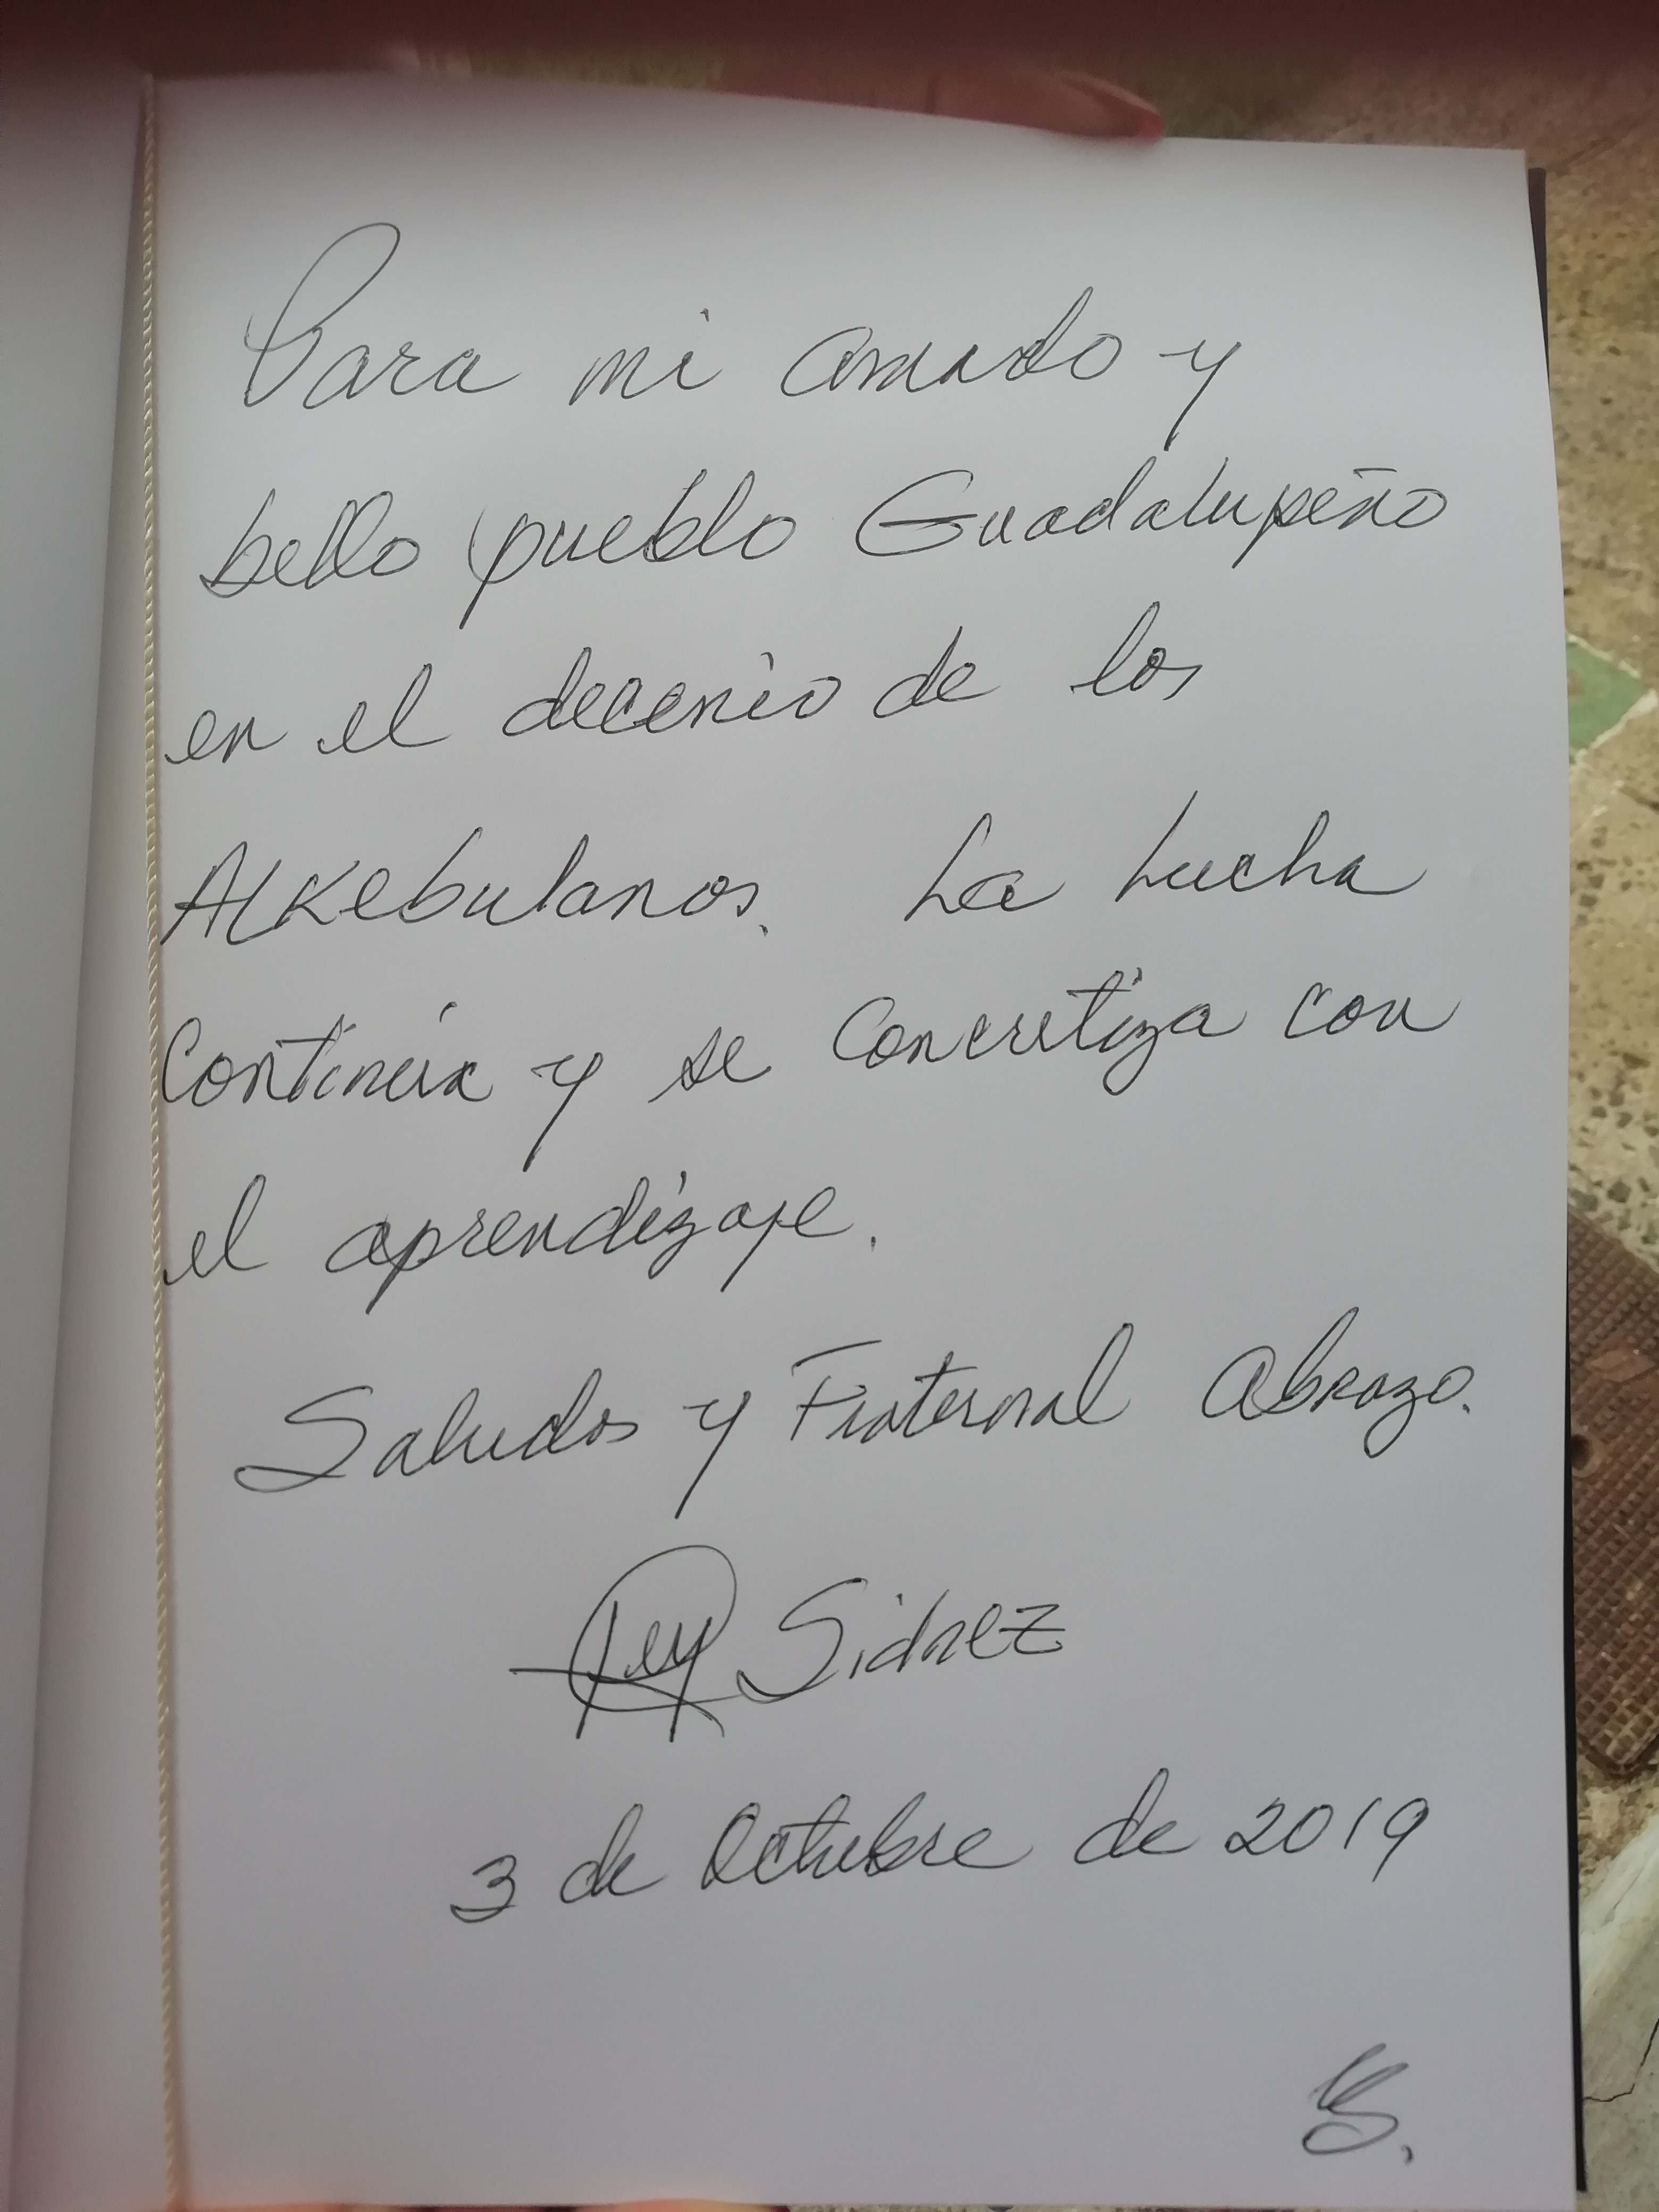 Para mi amado y
bello pueblo Guadalupeño
en el decenio de los
Alkebulanos. La Lucha
Continúa y se Concretiza con
el aprendizaje.
Saludos y Fraternal Abrazo.
Rey Sidnez
3 de Octubre de 2019